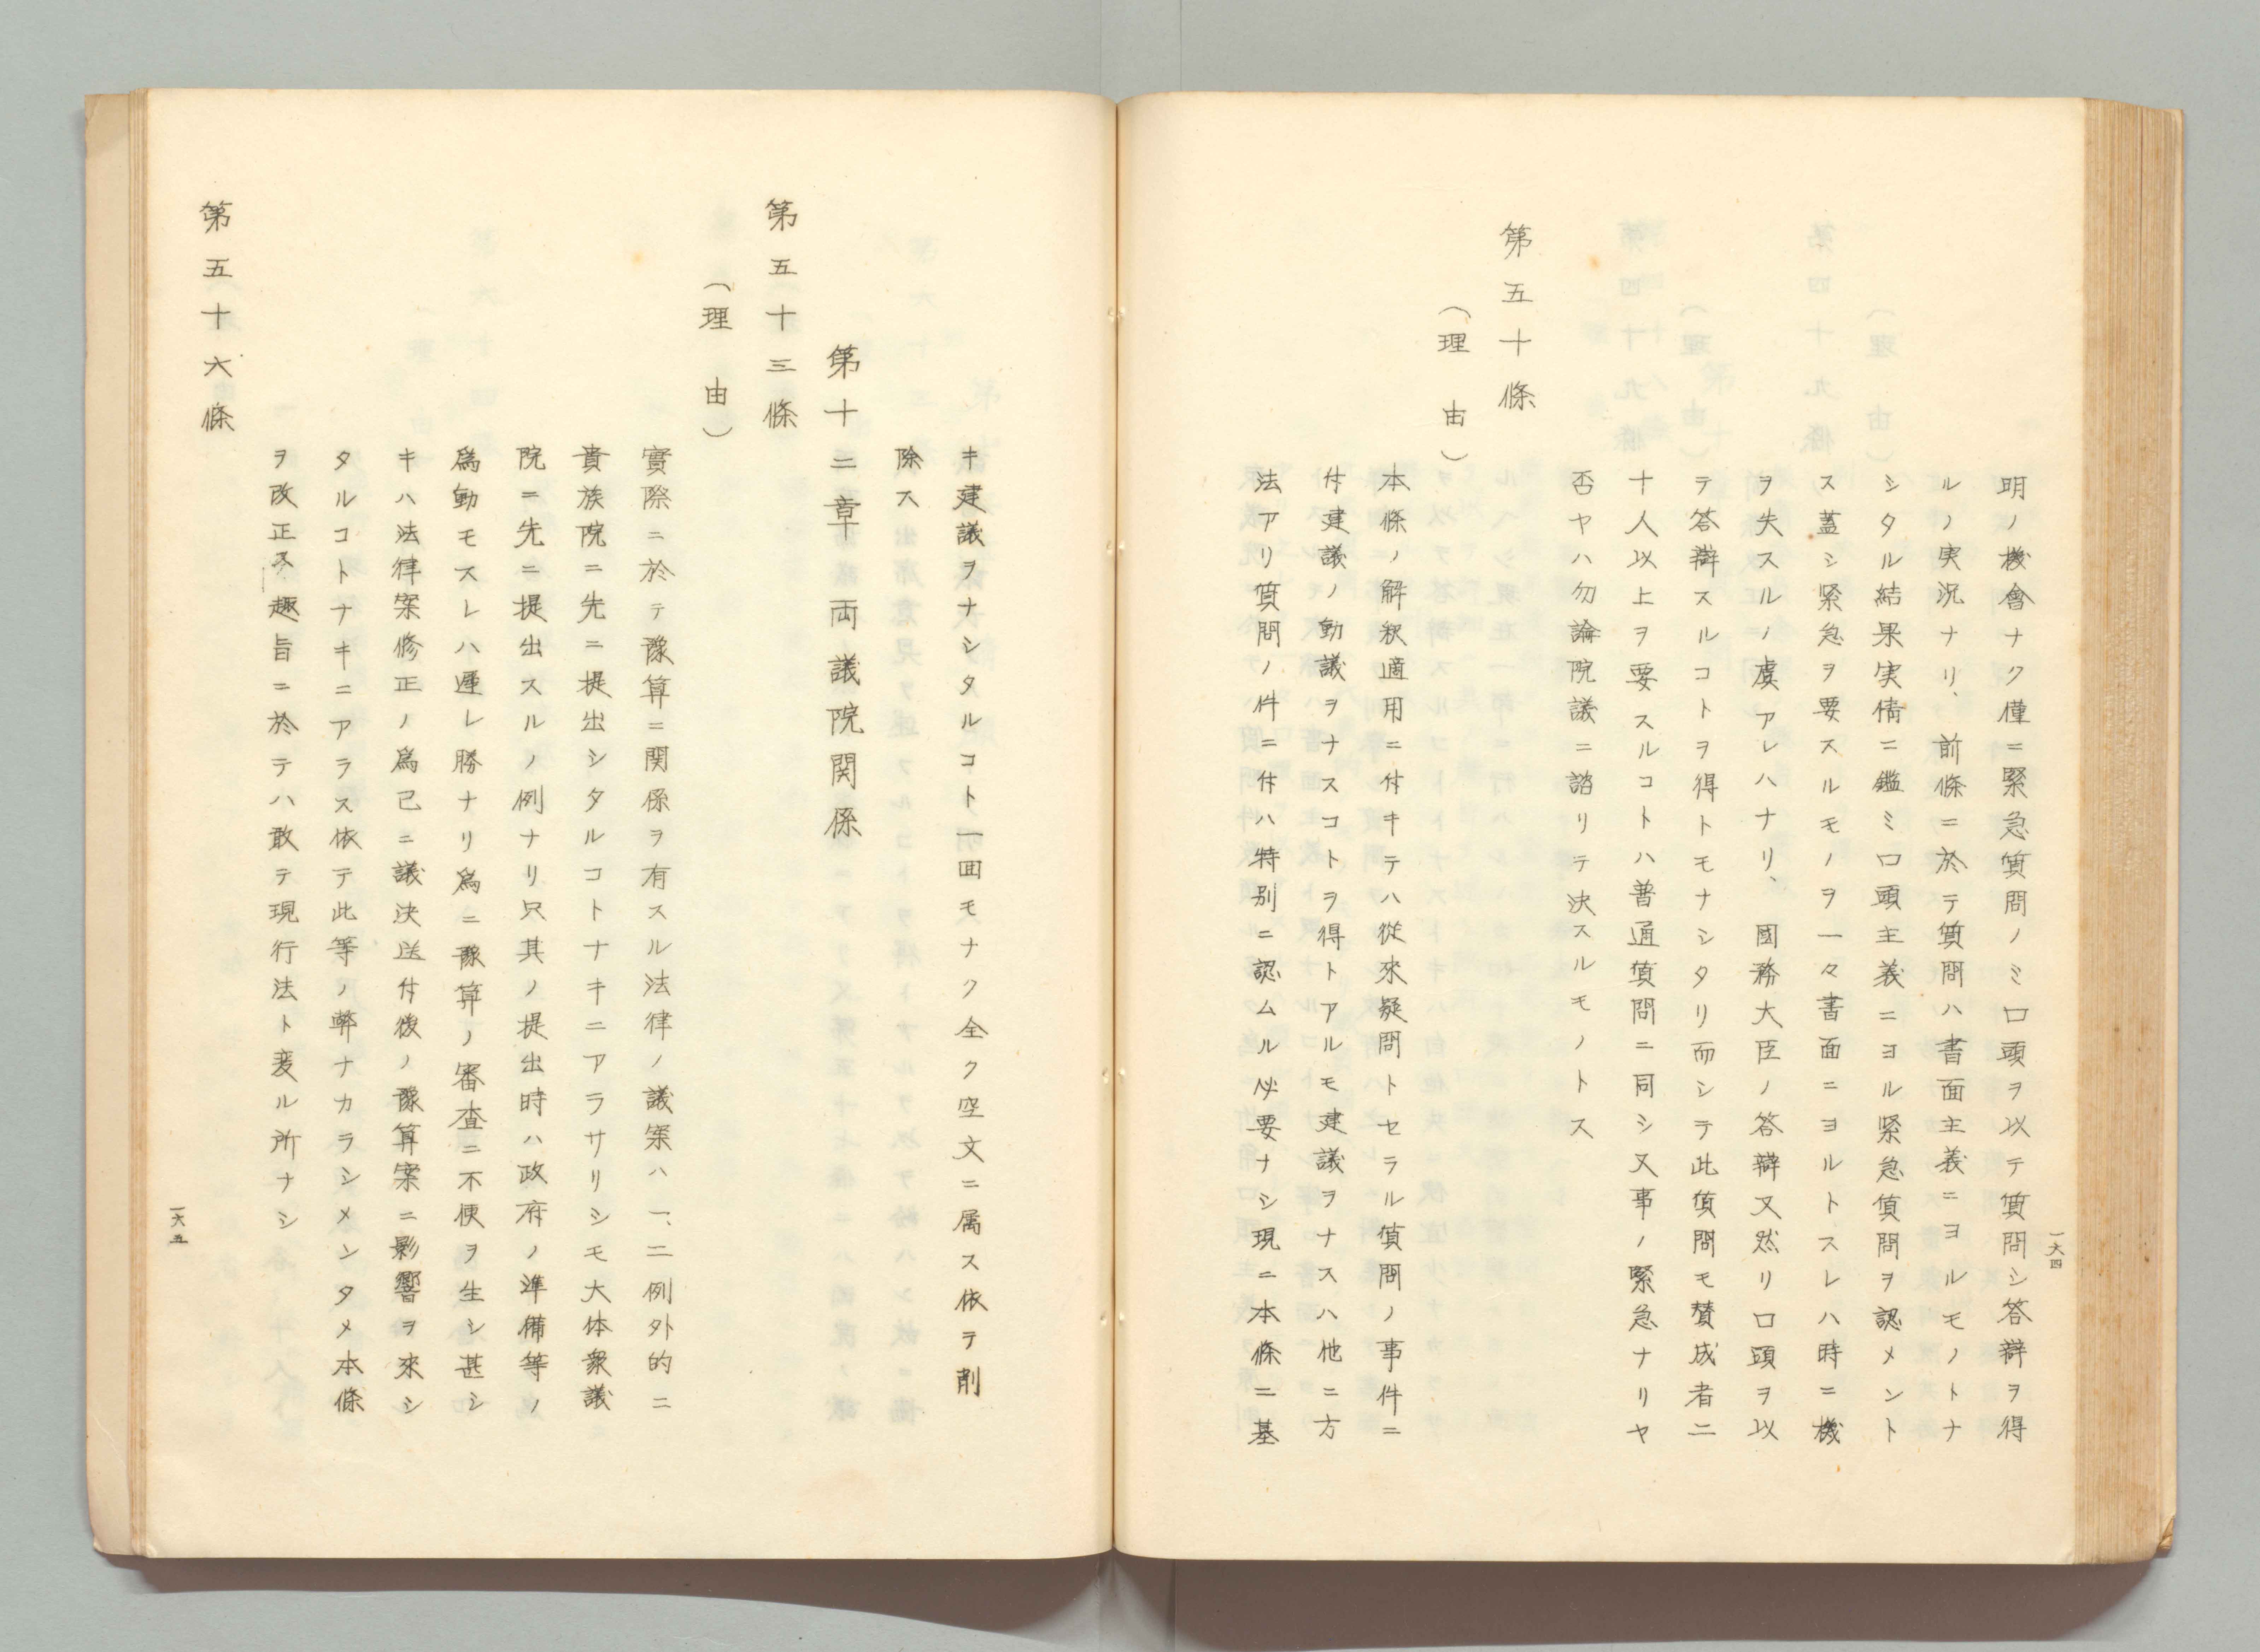 明ノ機會ナク僅ニ緊急質問ノミ口頭ヲ以テ質問シ答辯ヲ得
ルノ実況ナリ、前條ニ於テ質問ハ書面主義ニヨルモノトナ
シタル結果実情ニ鑑ミ口頭主義ニヨル緊急質問ヲ認メント
ス蓋シ緊急ヲ要スルモノヲ一々書面ニヨルトスレハ時ニ機
ヲ失スルノ虞アレハナリ、國務大臣ノ答辯又然リ口頭ヲ以
テ答辯スルコトヲ得トモナシタリ而シテ此質問モ賛成者二
十人以上ヲ要スルコトハ普通質問ニ同シ又事ノ緊急ナリヤ
否ヤハ勿論院議ニ諮リテ決スルモノトス
第五十條
（理由）
本條ノ解釈適用ニ付キテハ從來疑問トセラル質問ノ事件ニ
付建議ノ動議ヲナスコトヲ得トアルモ建議ヲナスハ他ニ方
法アリ質問ノ件ニ付ハ特別ニ認ムル必要ナシ現ニ本條ニ基
一六四
キ建議ヲナシタルコト一回モナク全ク空文ニ属ス依テ削
除ス
第十二章 両議院関係
第五十三條
（理由）
實際ニ於テ豫算ニ関係ヲ有スル法律ノ議案ハ一、二例外的ニ
貴族院ニ先ニ提出シタルコトナキニアラサリシモ大体衆議
院ニ先ニ提出スルノ例ナリ只其ノ提出時ハ政府ノ準備等ノ
為動モスレハ遅レ勝ナリ為ニ豫算ノ審査ニ不便ヲ生シ甚シ
キハ法律案修正ノ為已ニ議決送付後ノ豫算案ニ影響ヲ來シ
タルコトナキニアラス依テ此等ノ弊ナカラシメンタメ本條
ヲ改正ス趣旨ニ於テハ敢テ現行法ト変ル所ナシ
第五十六條
一六五